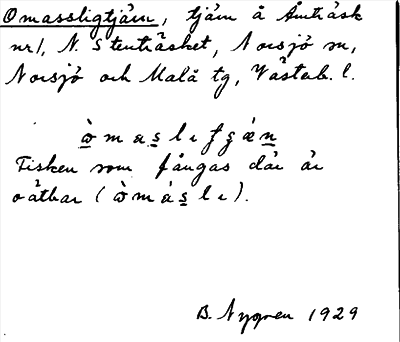 Omassligtjärn, tjärn å Åmträsk
nr 1, N. Stenträsket, Norsjö sn,
Norsjö och Malå tg, Västerb. l.
ȯ̱̀ m a s̱ l ɩ ʃ ʒ æ̀ ṉ
Fisken som fångas där är
oätbar (ȯ̱̀ m á s̱ l ɩ).
B. Nygren 1929